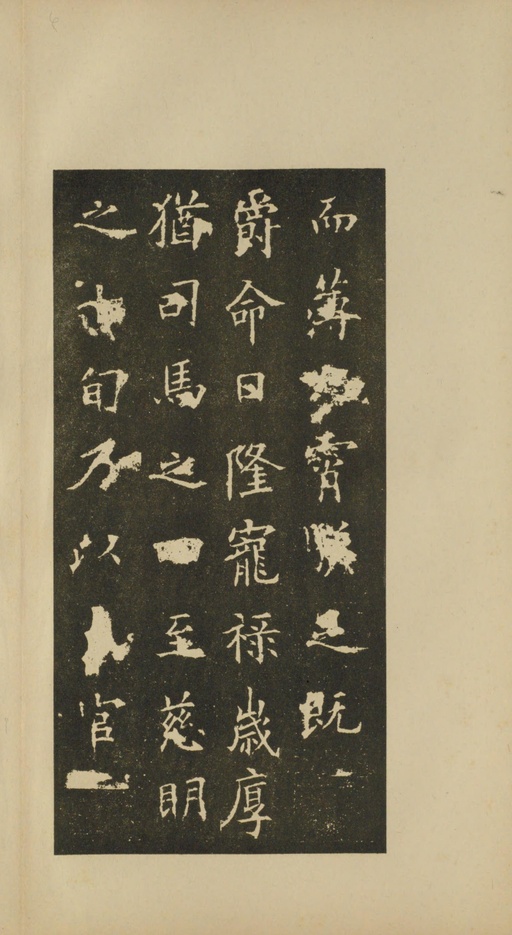 而薄霄足既
爵命日隆寵祿歲厚
猶司馬之至慈明
之旬乃以官